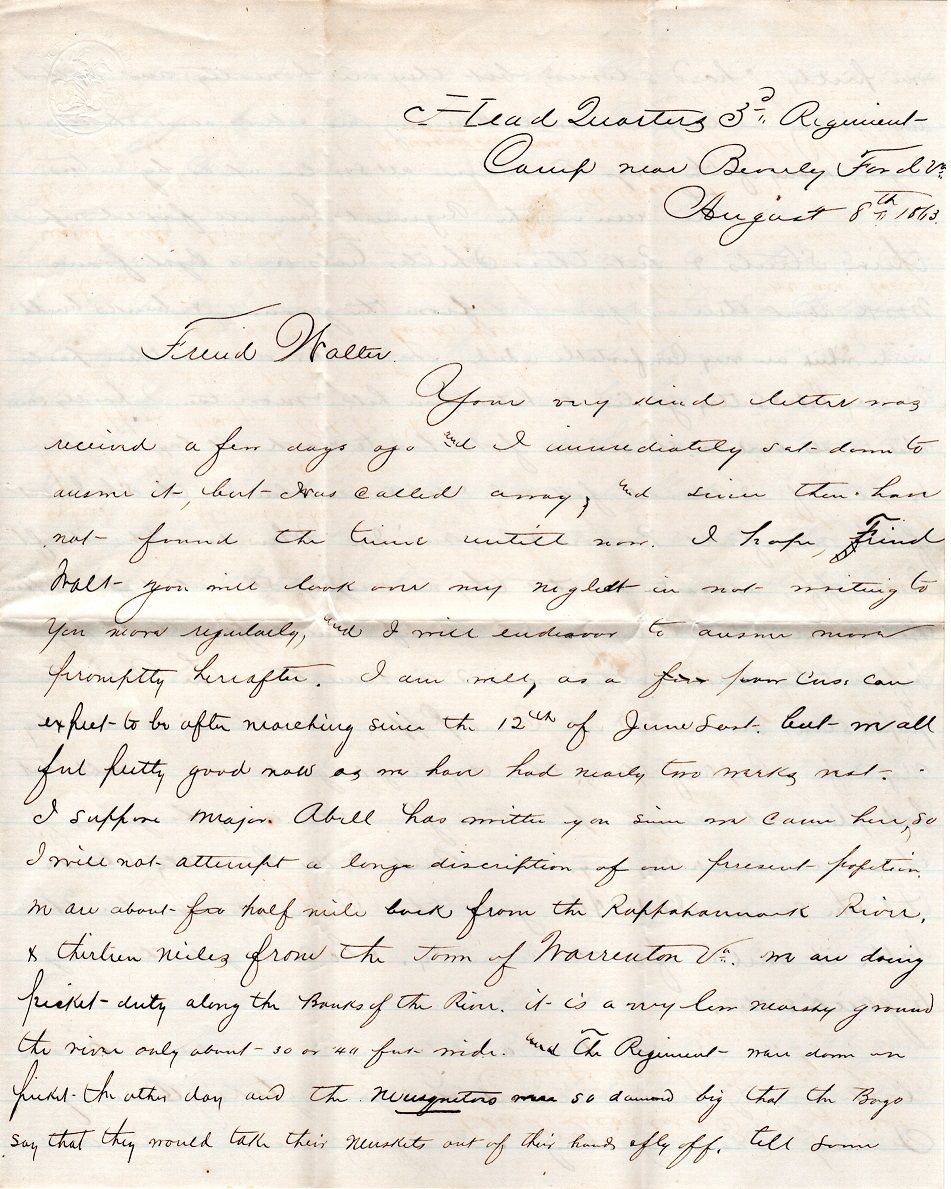 Head Quarters 3d Regiment
Camp near Beverly Ford Va.
August 8th 1863.
Freind Walter.
Your very kind letter was
received a few days ago and I immediately sat down to
answer it, but I was called away, and since then have
not found the time untill now. I hope, Freind
Walt you will look over my neglect in not writing to
you more regularly, and I will endeavor to answer more
promptly hereafter. I am well, as a poor Cuss can
expect to be after marching since the 12th of June last. but we all
feel pretty good now as we have had nearly two weeks rest.
I suppose Major Abell has written you since we came here, so
I will not attempt a long discription of our present position.
We are about half mile back from the Rappahannock River,
& thirteen miles from the Town of Warrenton Va. we are doing
picket duty along the Banks of the River. it is a very low marshy ground
the river only about 30 or 40 feet wide. and The Regiment were down on
picket the other day and the Musquetoes were so damned big that the Boys
say that they would take their Muskets out of their hands & fly off, tell some